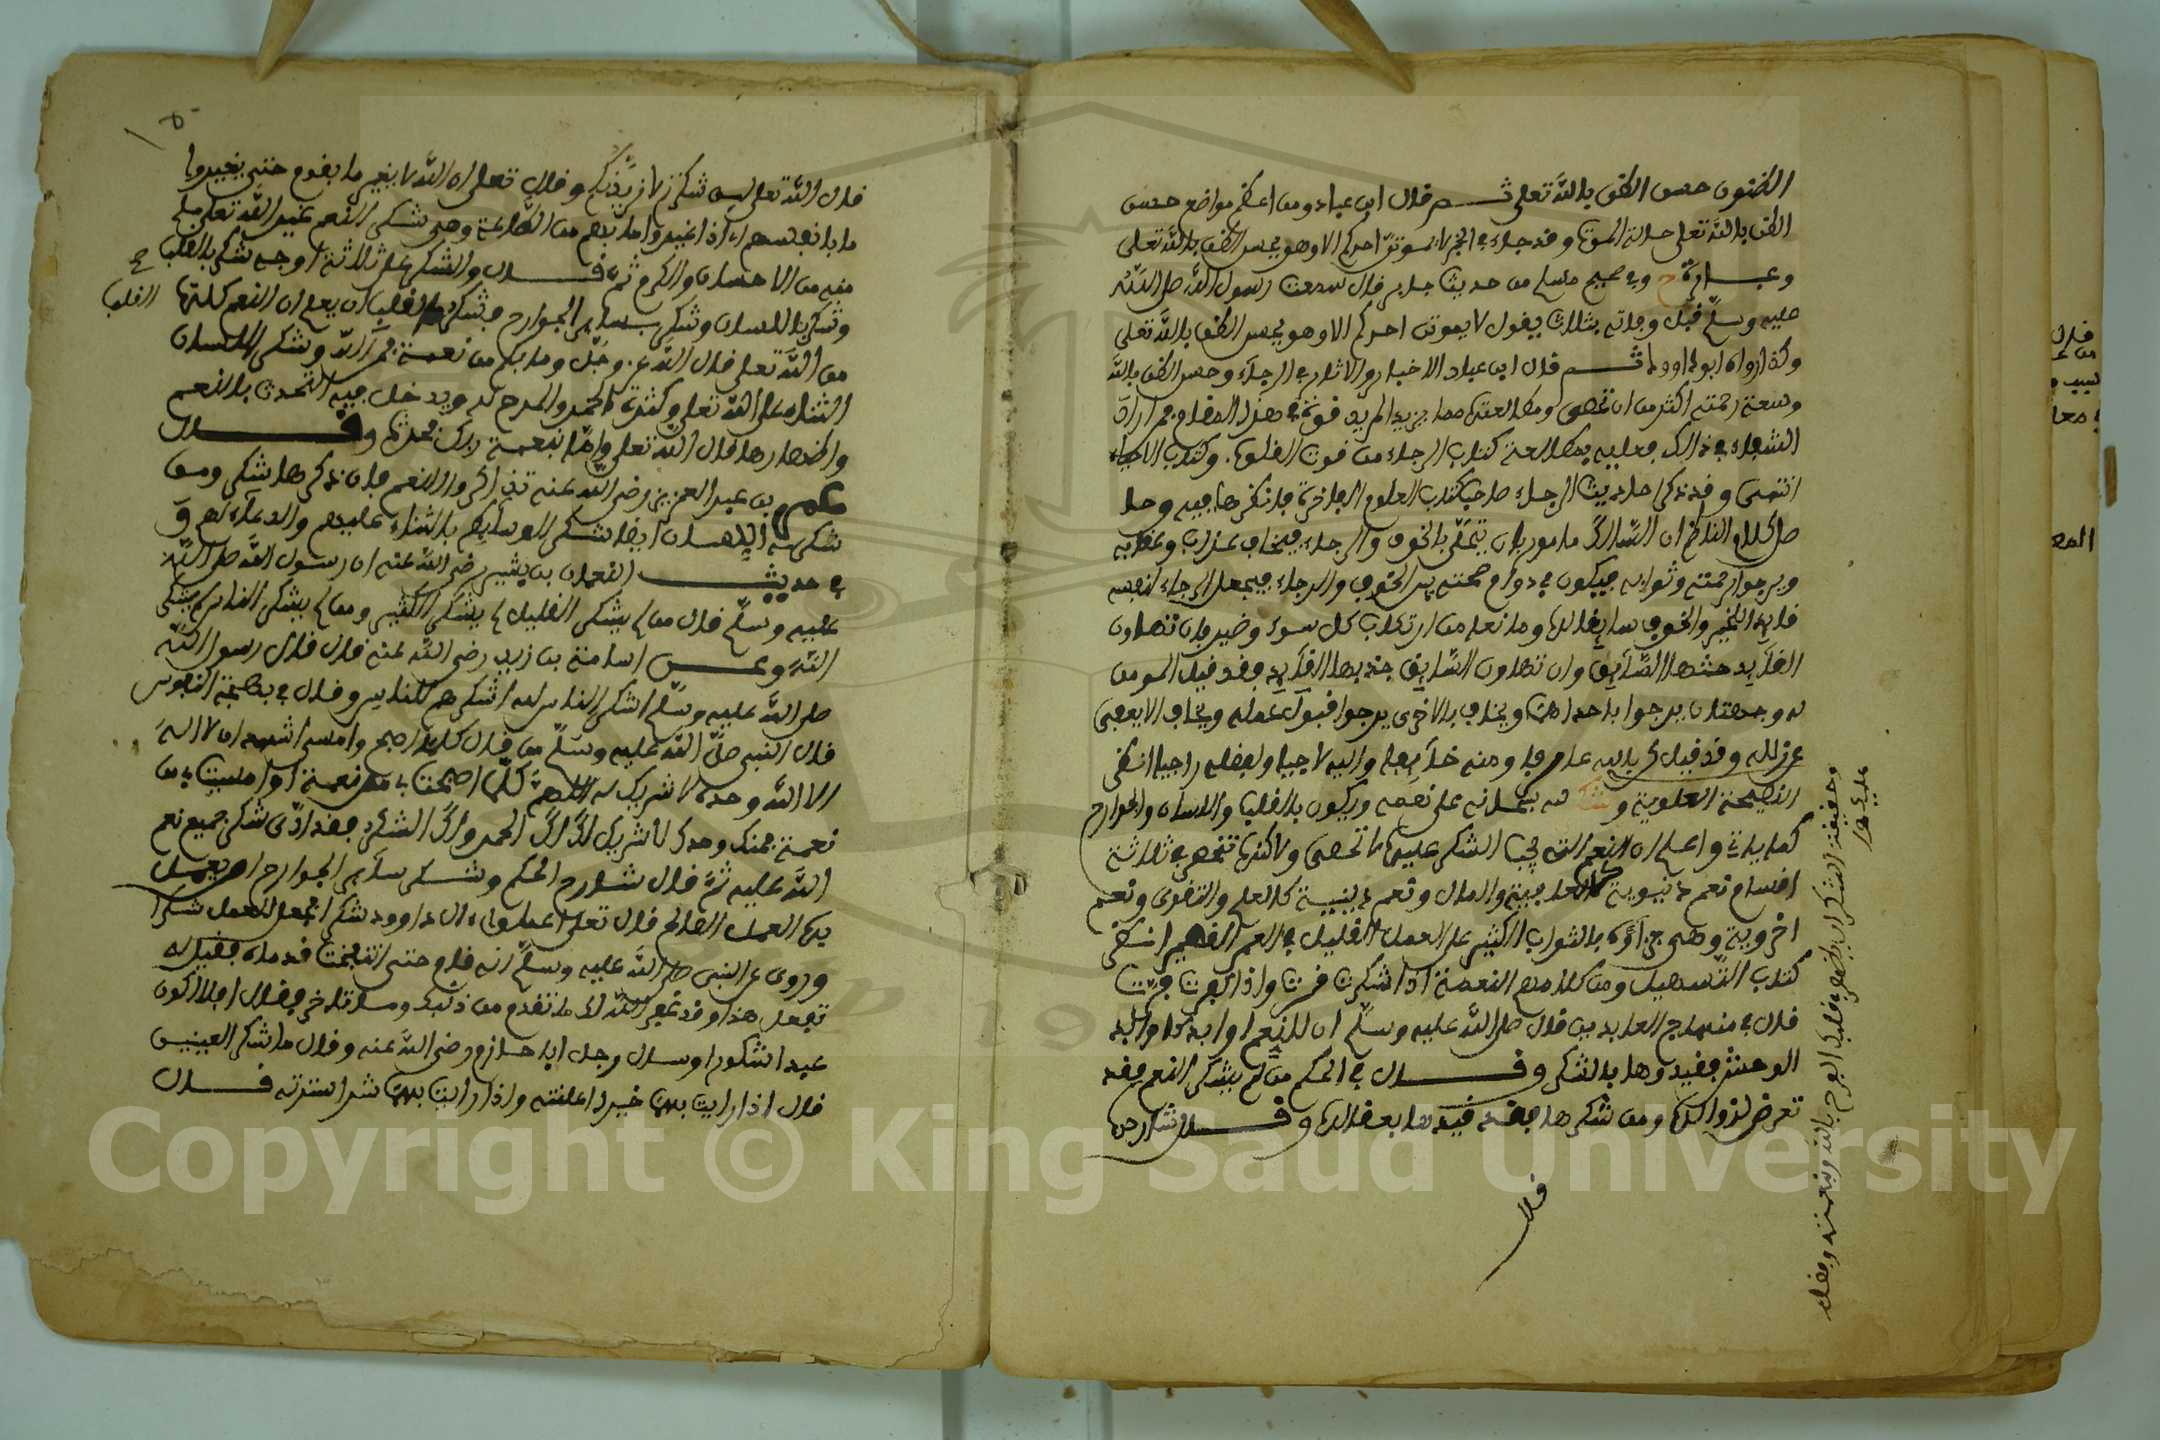 الظنون حسن الظن بالله تعلى ثم قال ابن عباد ومن اعظم مواضع حسن
الظن بالله تعلى حالة الموت وقد جاء في الخبر لا يموتن احدكم الا وهو يحسن الظن بالله تعلى
وعبارة وفي صحيح مسلم من حديث جابر قال سمعت رسول الله صلى الله
عليه وسلم قبل وفاته بثلاث يقول لا يموتن احدكم الا وهو يحسن الظن بالله تعلى
وكذا رواه ابو داوود ثم قال ابن عباد الاخبار والاثار في الرجاء وحسن الظن بالله
وسعة رحمته اكثر من ان تحصى ومطالعتها مما يزيد المريد قوة في هذا المقام فمن اراد
الشفاء في ذالك فعليه بمطالعة كتاب الرجاء من قوت القلوب وكتاب الاحياء
انتهى وقد ذكر احاديث الرجاء صاحب كتاب العلوم الفاخرة فانظرها فيه وحا
صل كلام الناظم ان السالك مامور بان يتحلى بالخوف والرجاء فيخاف عذاب وعقابه
ويرجوا رحمته وثوابه فيكون في دوام صحته بين الخوف والرجاء فيجعل الرجاء لنفسه
قايدا لخير والخوف سايقا لها ومانعا من ارتكاب كل سوء وضير فان تهاون
القايد حثها السايق وان تهاون السايق جذبها القايد فقد قيل المومن
له وجهتان يرجوا باحداهما ويخاف بالاخرى يرجوا قبول عمله ويخاف الا يعفى
عن زلله وقد قيل كن بالله عارفا ومنه خايفا واليه لاجيا ولفضله راجيا انظر
النصيحة العلوية وشكر له سبحانه على نعمه ويكون بالقلب واللسان والجوارح
كما ياتي واعلم ان النعم التي يجب الشكر عليها لا تحصى ولاكنها تنحصر في ثلاثة
اقسام نعم دنيوية كالعافية والمال ونعم دينية كالعلم والتقوى ونعم
اخروية وهي جزاؤه بالثواب الكثير على العمل القليل في العمر القصير انظر
كتاب التسهيل ومن كلامهم النعمة اذا شكرت قرت واذا كفرت فرت
قال في منهاج العابدين قال صلى الله عليه وسلم ان للنعم اوابد كاوابد
الوحش فقيدوها بالشكر وقال في الحكم من لم يشكر النعم فقد
تعرض لزوالها ومن شكرها فقد قيدها بعقالها وقال شارحها
قال
وحقيقة الشكر ان يظهر في قلبك الفرح بالله وبنعمته وفضله
عليك
قال الله تعلى لين شكرتم لازيدنكم وقال تعلى ان الله لا يغير ما بقوم حتى يغيروا
ما بانفسهم اي اذا غيروا ما بهم من الطاعة وهي شكر النعم غير الله تعلى ما
منه من الاحسان والكرم ثم قال والشكر على ثلاثة اوجه شكر بالقلب
وشكر باللسان وشكر بساير الجوارح فشكر القلب ان يعلم ان النعم كلها
القلب
من الله تعلى قال الله عز وجل وما بكم من نعمة فمن الله وشكر اللسان
الثناء على الله تعلى وكثرة الحمد والمدح له ويدخل فيه التحدث بالنعم
واظهارها قال الله تعلى واما بنعمة ربك فحدث وقال
عمر بن عبد العزيز رضي الله عنه تذاكروا النعم فان ذكرها شكر ومن
شكر اللسان ايضا شكر الوسايط بالثناء عليهم والدعاء لهم و
في حديث النعمان بن بشير رضي الله عنه ان رسول الله صلى الله
عليه وسلم قال من لم يشكر القليل لم يشكر الكثير ومن لم يشكر الناس لم يشكر
الله وعن اسامة بن زيد رضي الله عنه قال قال رسول الله
صلى الله عليه وسلم اشكر الناس لله اشكرهم للناس وقال في بهجة النفوس
قال النبي صلى الله عليه وسلم من قال كلما اصبح وامسى اشهد ان لا اله
الا الله وحده لا شريك له اللهم كلما اصبحت بي من نعمة او امسيت بي من
نعمة فمنك وحدك لا شريك لك لك الحمد ولك الشكر فقد ادى شكر جميع نعم
الله عليه ثم قال شارح الحكم وشكر ساير الجوارح ان يعمل
بها العمل الصالح قال تعلى اعملوا ءال داوود شكرا فجعل العمل شكرا
وروي عن النبي صلى الله عليه وسلم انه قام حتى انتفخت قدماه فقيل له
تفعل هذا وقد غفر الله لك ما تقدم من ذنبك وما تاخر فقال افلا اكون
عبدا شكورا وسال رجل ابا حازم رضي الله عنه وقال ما شكر العينين
قال اذا رايت بهما خيرا اعلنته واذا رايت بهما شرا سترته قال